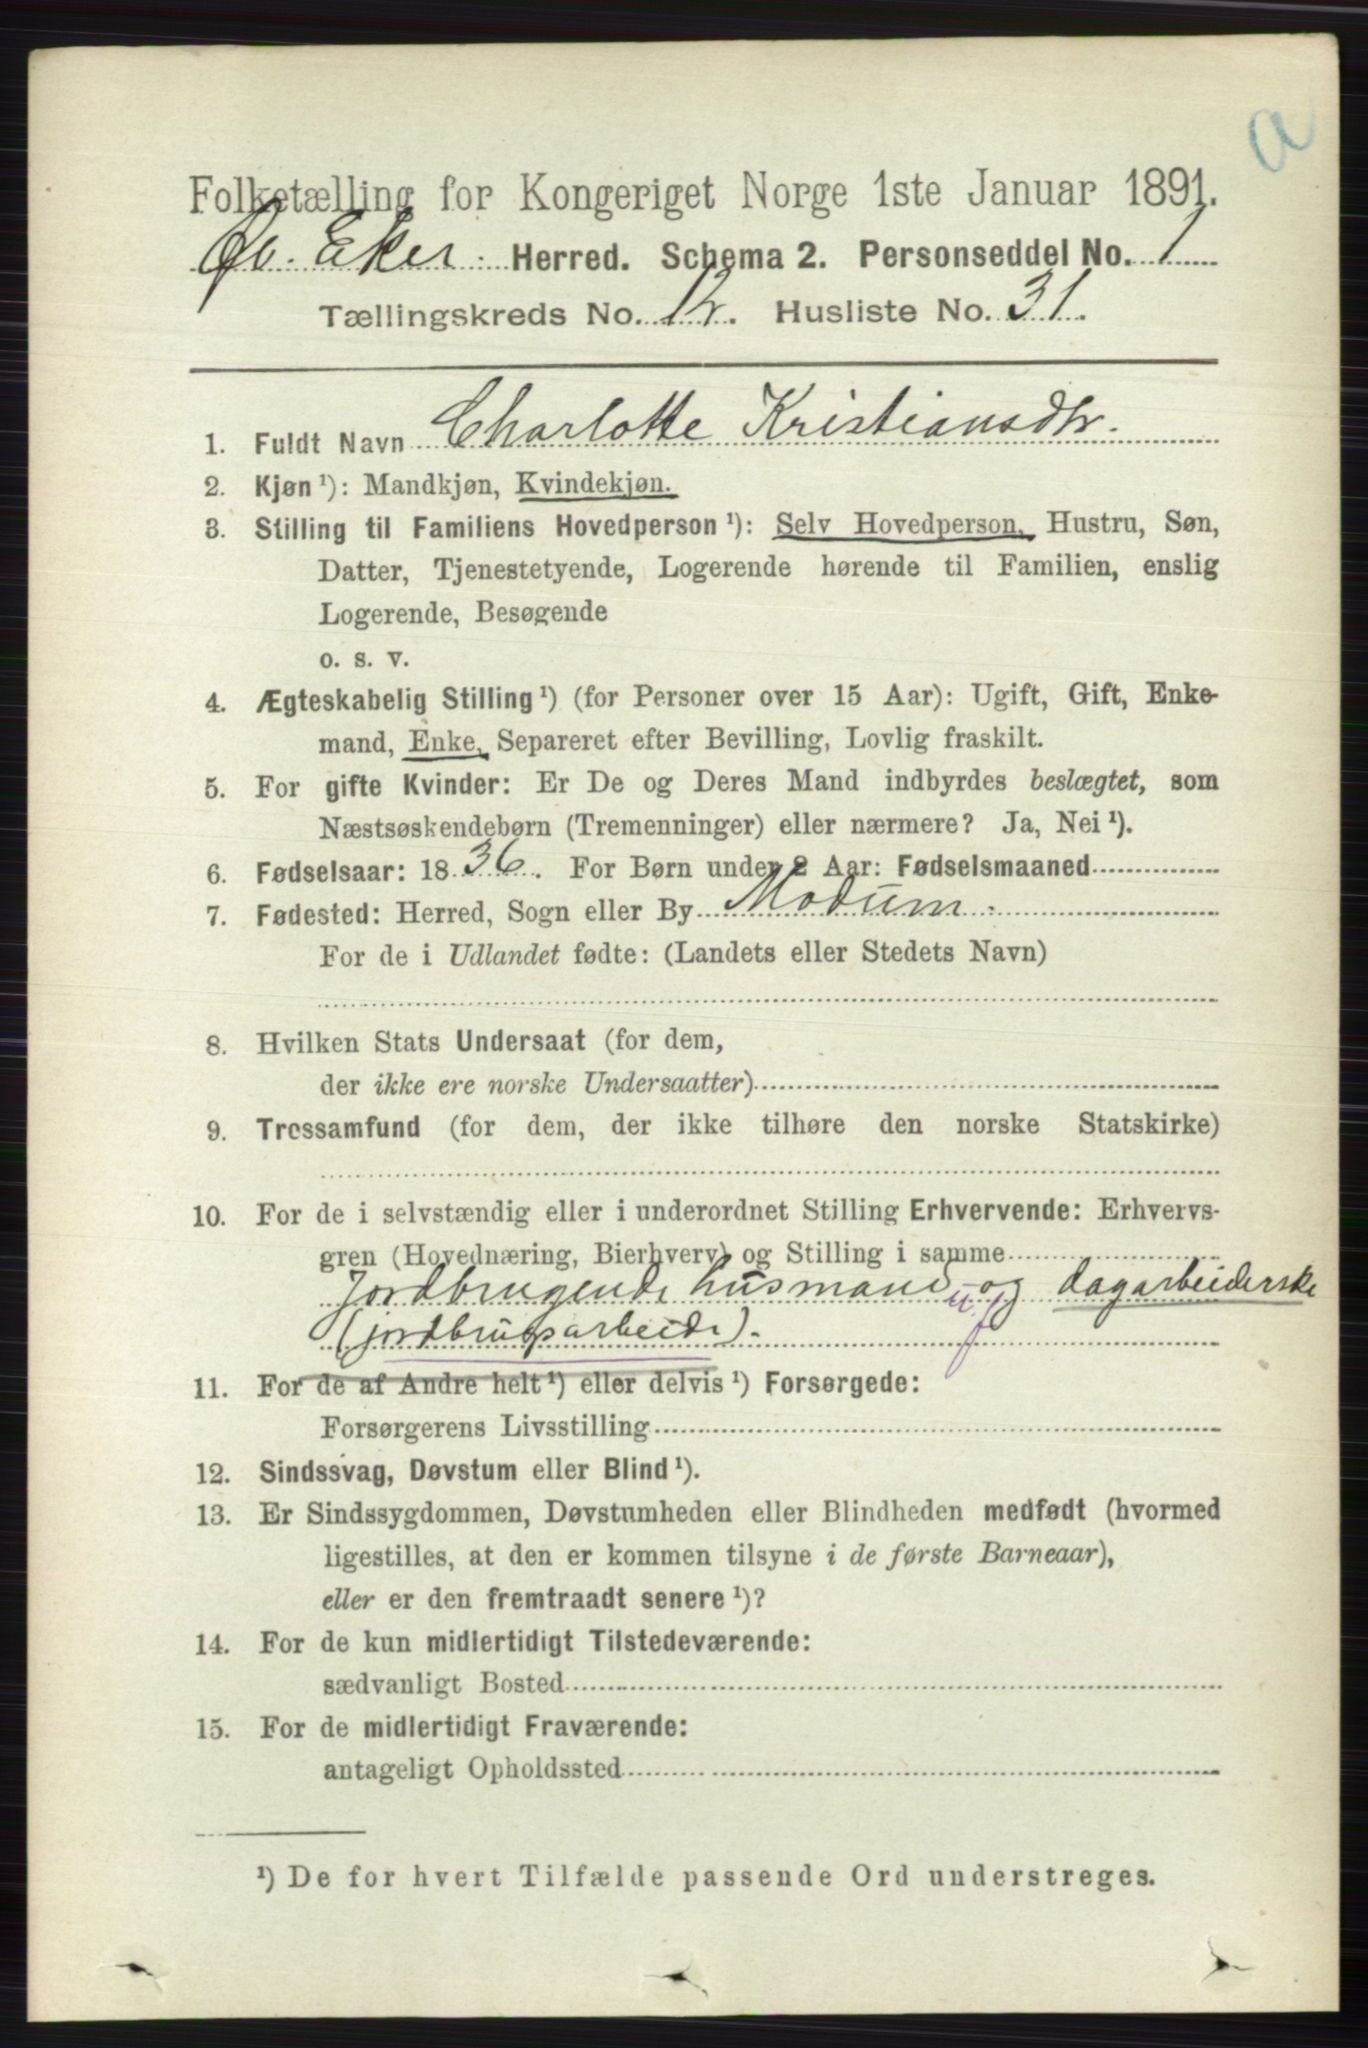 a
Folketælling for Kongeriget Norge 1ste Januar 1891.
Øv. Eker. Herred. Schema 2. Personseddel No. 1
Tællingskreds No. 12. Husliste No. 31.
1. Fuldt Navn Charlotte Kristiansdtr.
2. Kjøn ¹): Mandkjøn, Kvindekjøn.
3. Stilling til Familiens Hovedperson ¹): Selv Hovedperson, Hustru, Søn,
Datter, Tjenestetyende, Logerende hørende til Familien, enslig
Logerende, Besøgende
o. s. v.
4. Ægteskabelig Stilling ¹) (for Personer over 15 Aar): Ugift, Gift, Enke-
mand, Enke, Separeret efter Bevilling, Lovlig fraskilt.
5. For gifte Kvinder: Er De og Deres Mand indbyrdes beslægtet, som
Næstsøskendebørn (Tremenninger) eller nærmere? Ja, Nei ¹).
6. Fødselsaar: 1836. For Børn under 2 Aar: Fødselsmaaned
7. Fødested: Herred, Sogn eller By Modum.
For de i Udlandet fødte: (Landets eller Stedets Navn)
8. Hvilken Stats Undersaat (for dem,
der ikke ere norske Undersaatter)
9. Trossamfund (for dem, der ikke tilhøre den norske Statskirke)
10. For de i selvstændig eller i underordnet Stilling Erhvervende: Erhvervs-
gren (Hovednæring, Bierhverv) og Stilling i samme
Jordbrugende husmand og dagarbeiderske
(jordbrugsarbeide).
11. For de af Andre helt ¹) eller delvis ¹) Forsørgede:
Forsørgerens Livsstilling
12. Sindssvag, Døvstum eller Blind ¹).
13. Er Sindssygdommen, Døvstumheden eller Blindheden medfødt (hvormed
ligestilles, at den er kommen tilsyne i de første Barneaar),
eller er den fremtraadt senere ¹)?
14. For de kun midlertidigt Tilstedeværende:
sædvanligt Bosted
15. For de midlertidigt Fraværende:
antageligt Opholdssted
¹) De for hvert Tilfælde passende Ord understreges.